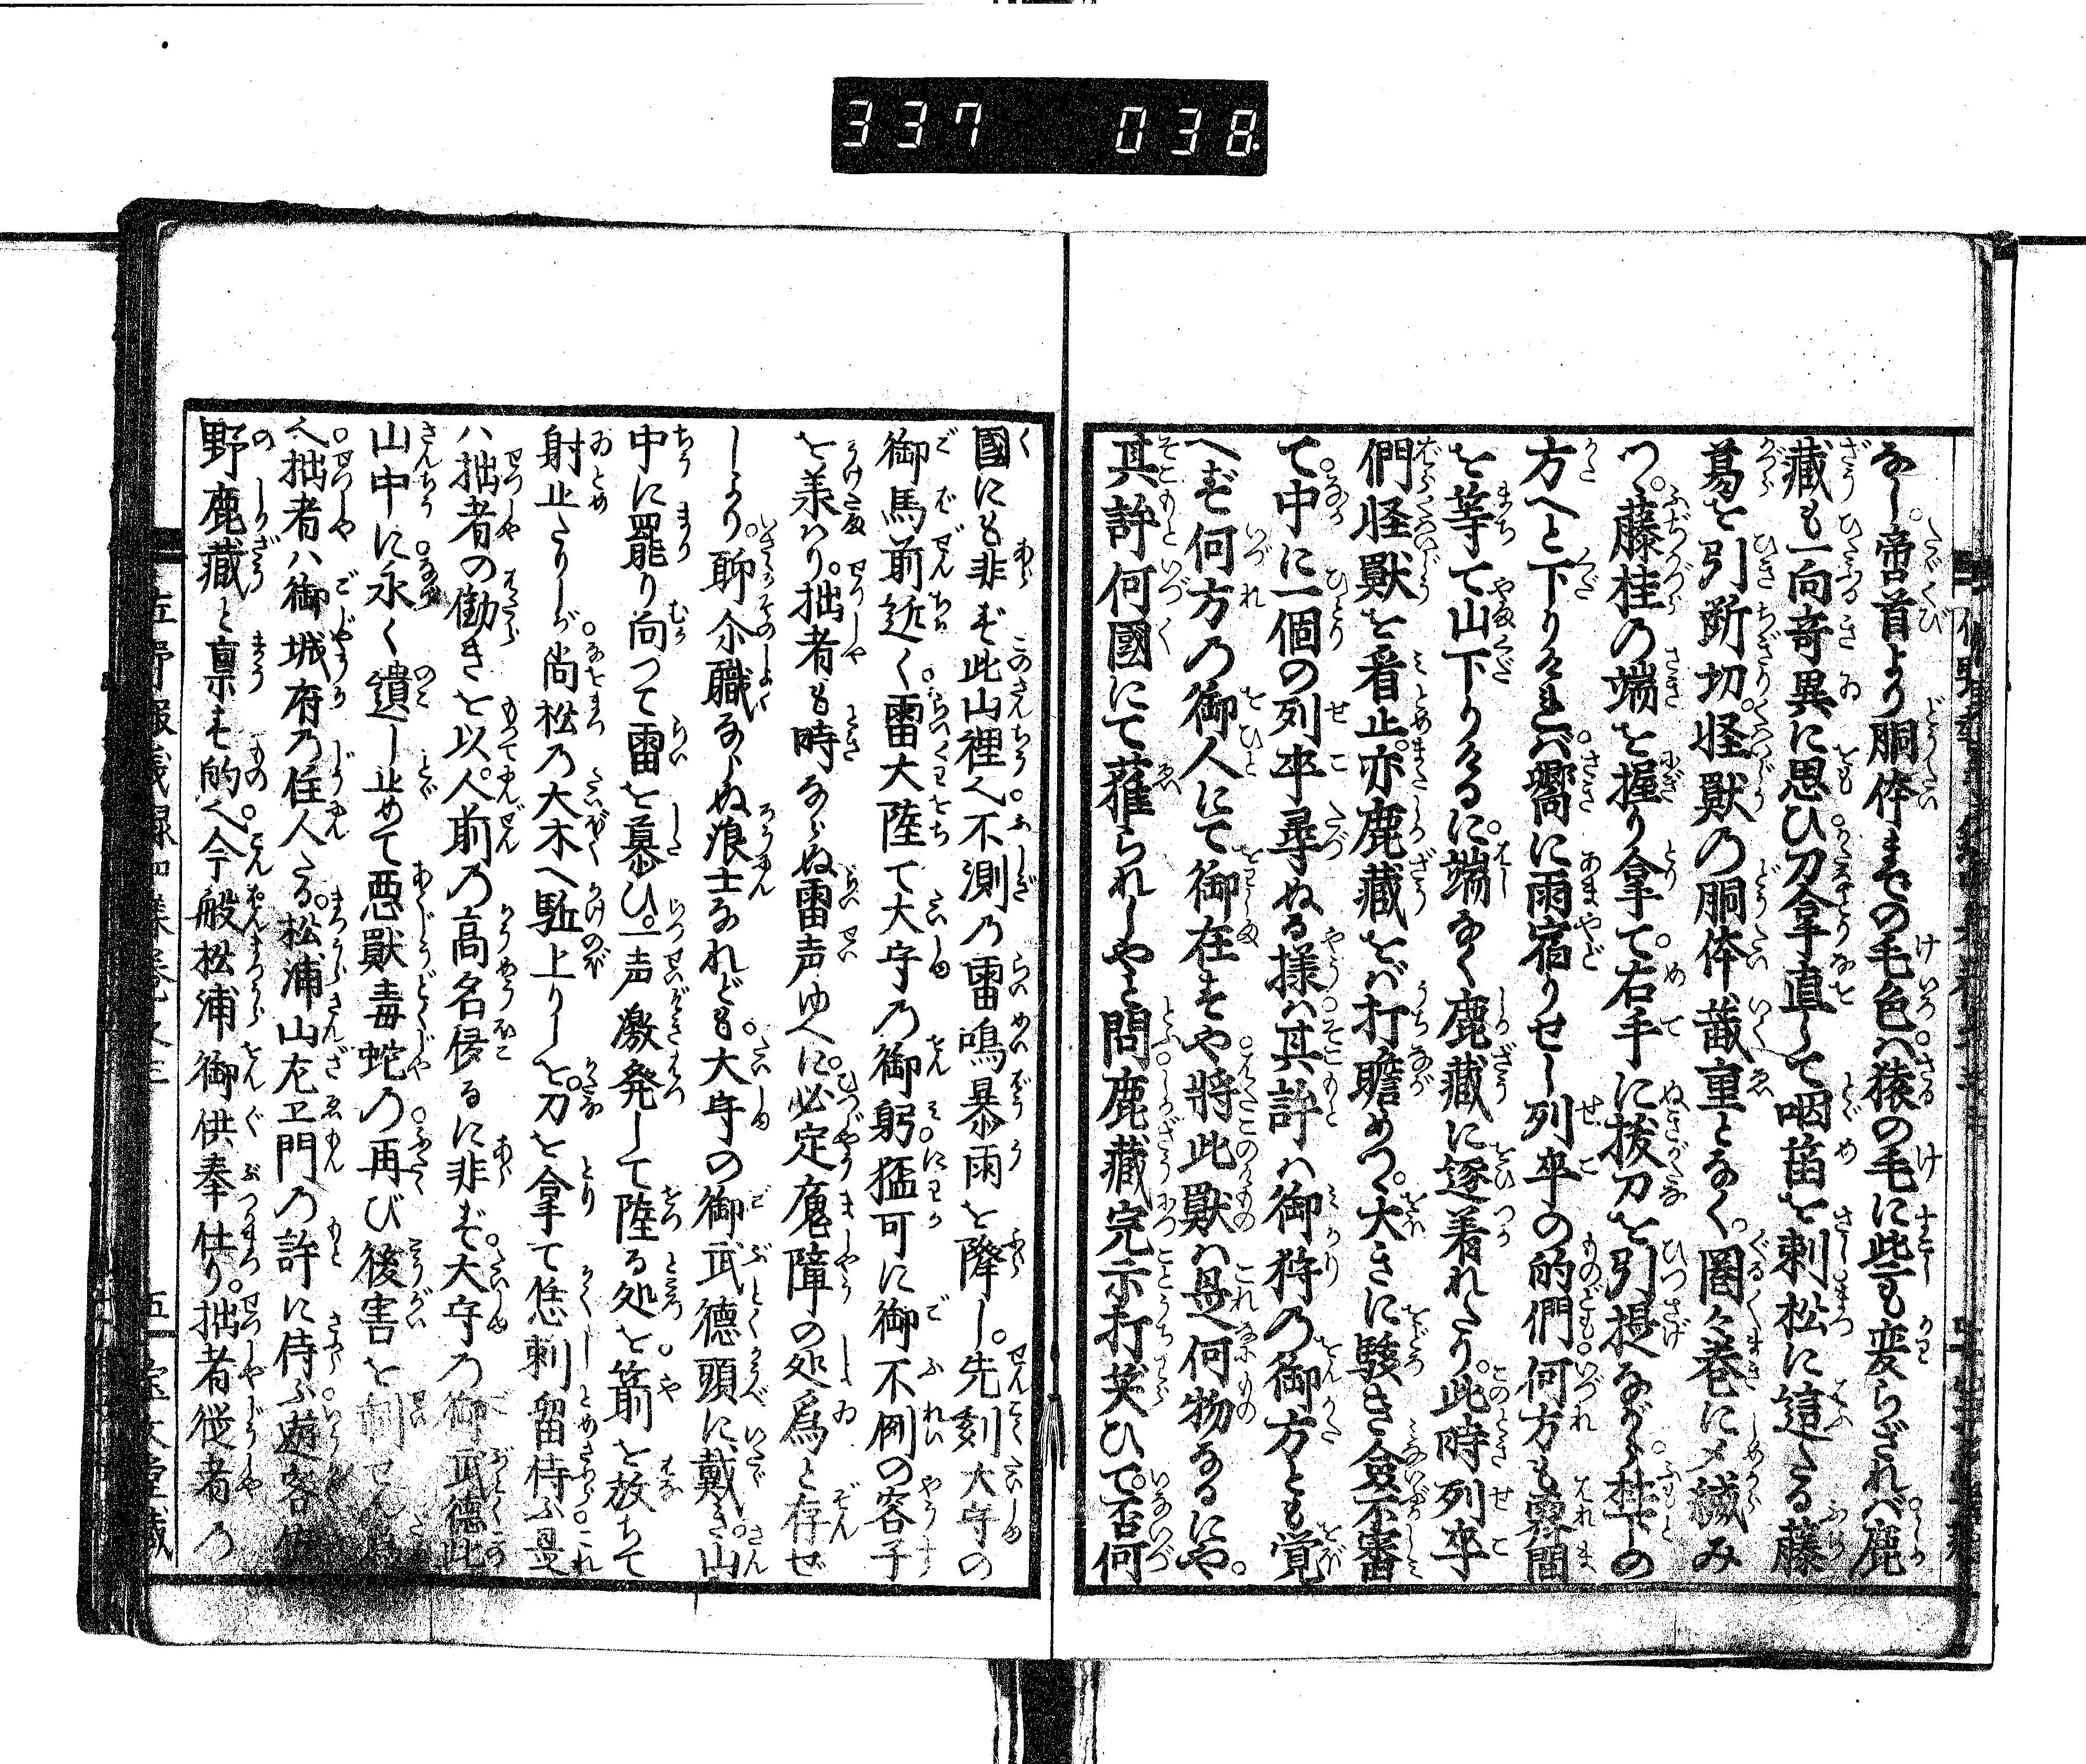 337 038
なし。啻首より胴体までの毛色ハ。猿の毛に些も変らざれバ。鹿
藏も一向奇異に思ひ。刀拿直して咽笛を刺。松に這たる藤
葛を引断切。怪獣の胴体截重となく。圏々巻に〆緘み
つ。藤桂の端を握り拿て。右手に抜刀を引提ながら。桂下の
方へと下りけれバ。嚮に雨宿りせし列卒の的們。何方も霽間
を等て山下りけるに。端なく鹿藏に逐着れたり。此時列卒
們怪獣を看止。亦鹿藏をバ打瞻めつ。大きに駭き僉不審
て。中に一個の列卒尋ぬる様ハ。其許ハ御狩の御方とも覚
へず。何方の御人にて御在すや。將此獣ハ是何物なるにや。
其許何國にて獲られしやと問。鹿藏完示打笑ひて。否何
國にも非ず此山裡へ。不測の雷鳴暴雨を降し。先刻大守の
御馬前近く。雷大陸て大守の御躬。猛可に御不例の容子
を美ハり。拙者も時ならぬ雷声ゆへに。必定魔障の処爲と存ぜ
しより。聊尒職ならぬ浪士なれども。大守の御武德頭に戴き。山
中に罷り尚つて雷を慕ひ。一声激発して陸る処を。箭を放ちて
射止たりしが。尚松の大木へ駈上りしを。刀を拿て恁刺畱侍ふ。是
ハ拙者の働きを以。人前の高名侵るに非ず。大守の御武德此
山中に永く遺し止めて。悪獣毒蛇の再び後害を制せん爲
へ。拙者ハ御城府の住人たる。松浦山左エ門の許に侍ふ。遊客
野鹿藏と禀す的へ。今般松浦御供奉仕り。拙者従者の